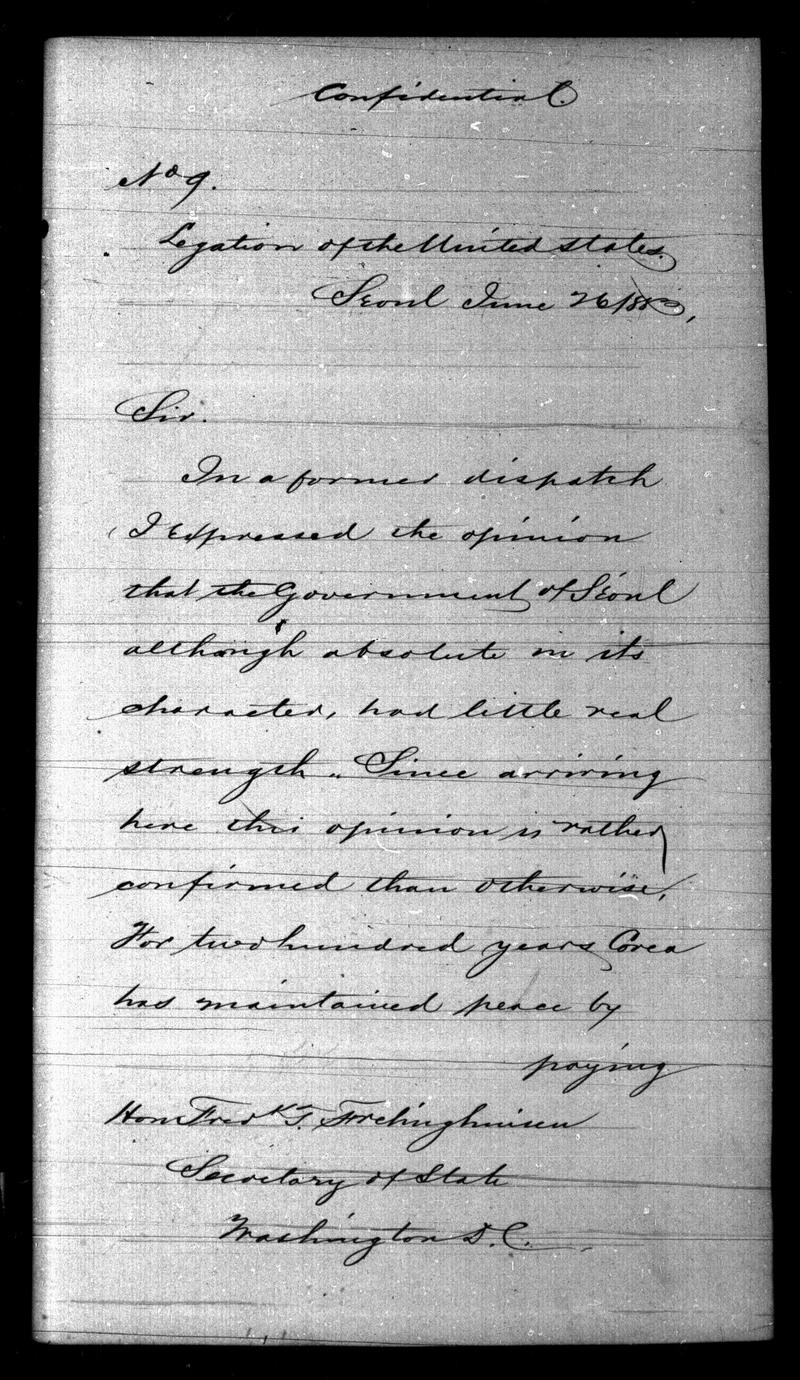 Confidential.
No 9.
Legation of the United States.
Seoul June 26/83,
Sir.
In a former dispatch
I expressed the opinion
that the Government of Seoul
although absolute in its
character, had little real
strength. Since arriving
here this opinion is rather
confirmed than otherwise,
For two hundred years Corea
has maintained peace by
paying
Hon Fredk T. Frelinghuisen
Secretary of State
Washington D.C.